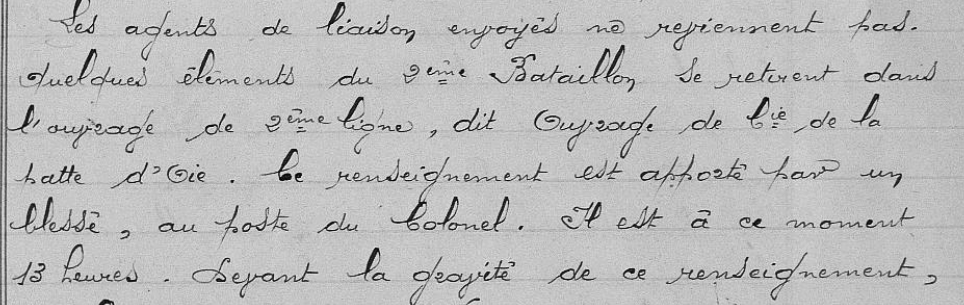 Les agents de liaison envoyés ne reviennent pas.
Quelques éléments du 2ème Bataillon se retirent dans
l'ouvrage de 2ème ligne, dit Ouvrage de Cie de la
patte d'Oie. Ce renseignement est apporté par un
blessé, au poste du Colonel. Il est à ce moment
13 heures. Devant la gravité de ce renseignement,